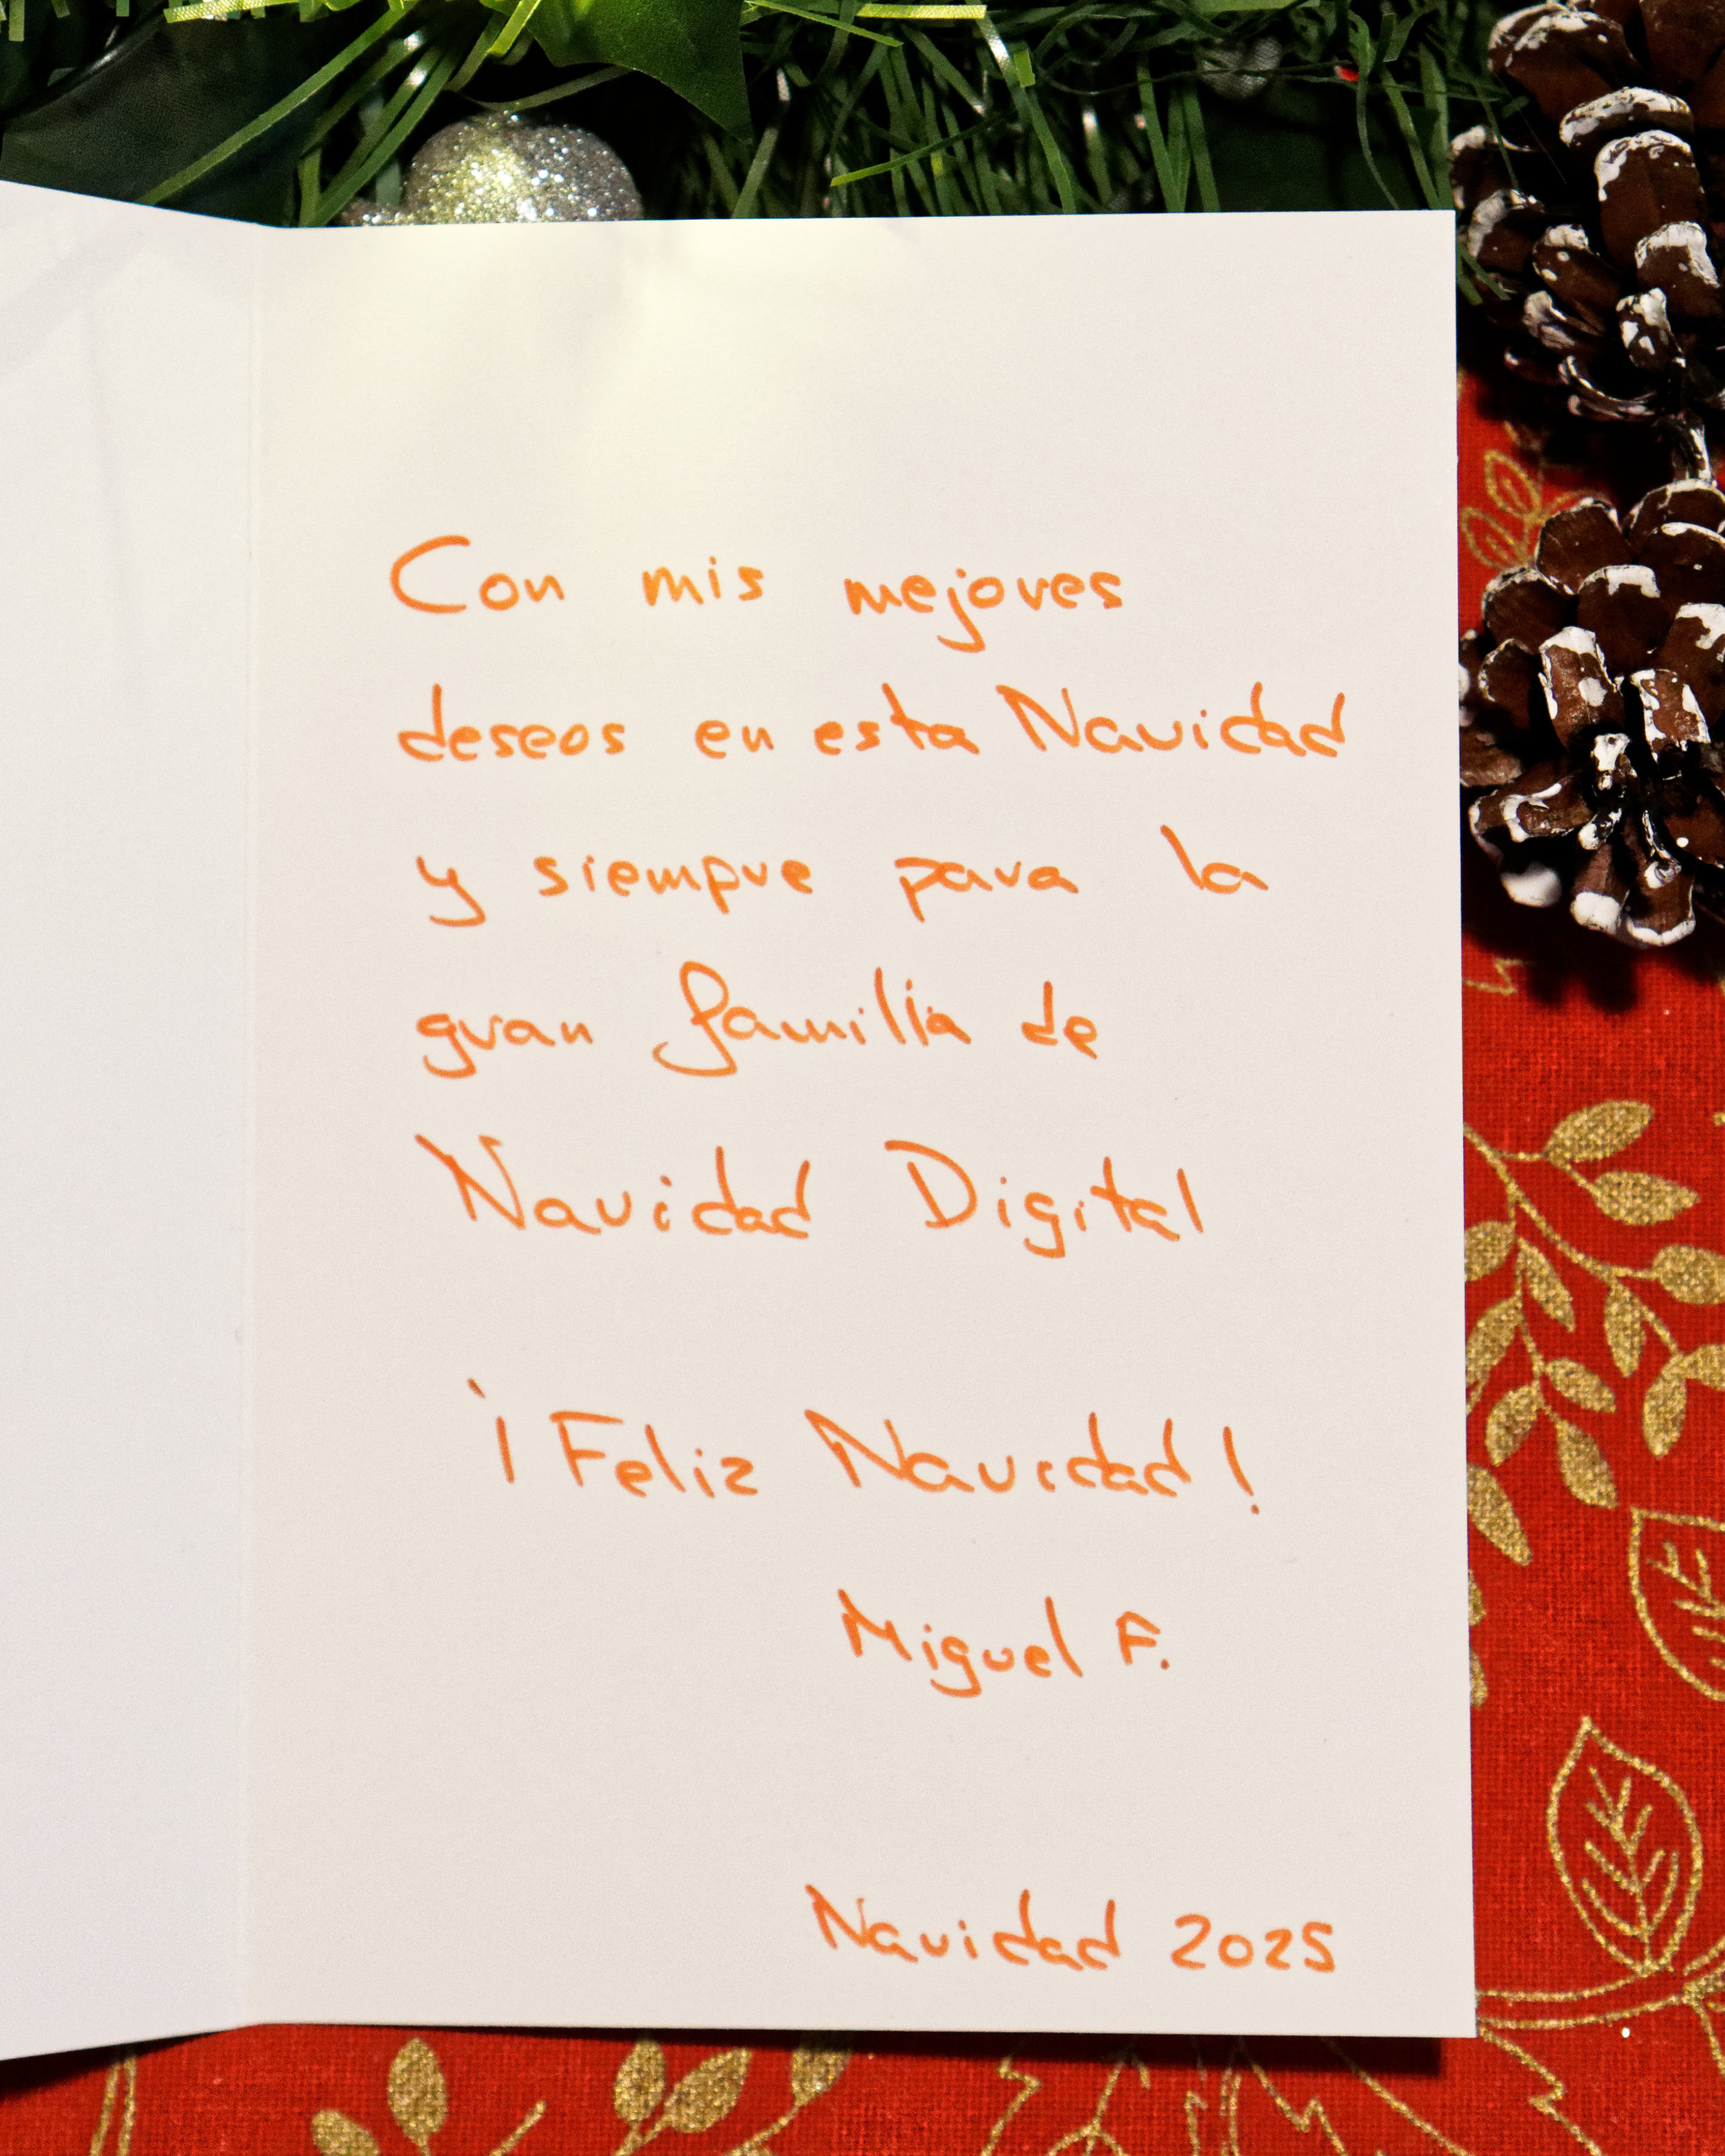 Con mis mejores
deseos en esta Navidad
y siempre para la
gran familia de
Navidad Digital
¡Feliz Navidad!
Miguel F.
Navidad 2025